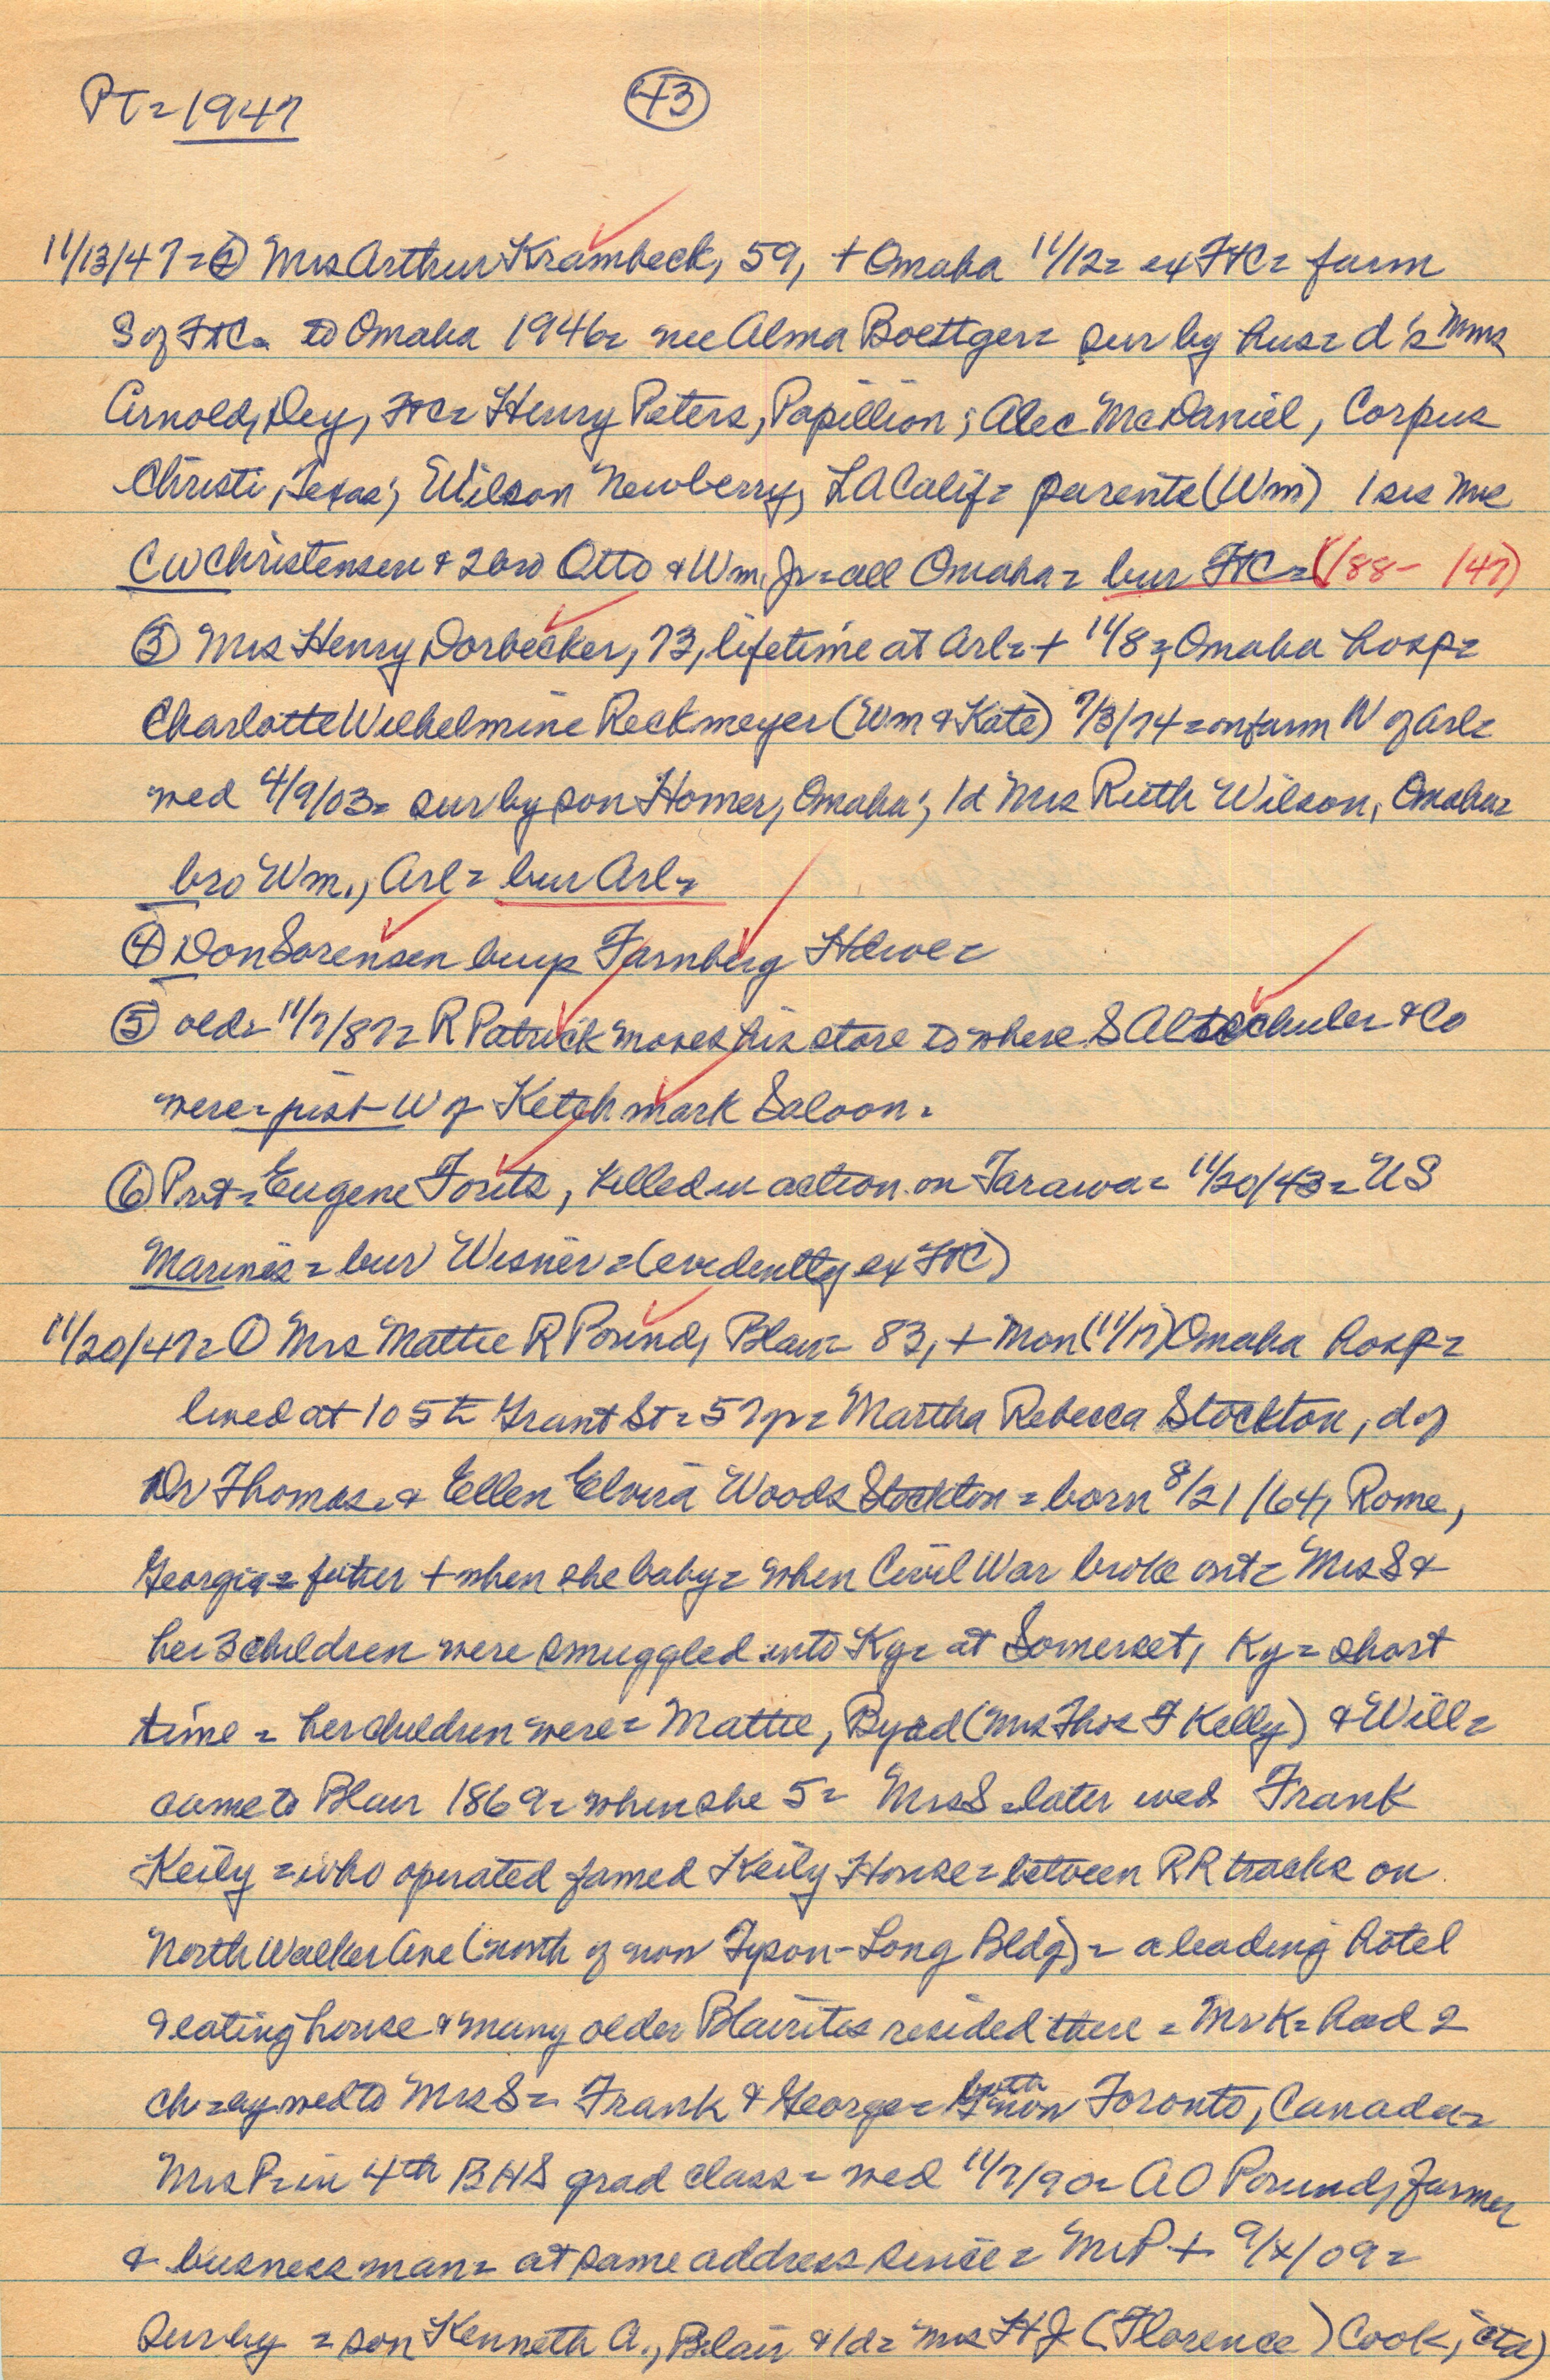 PT = 1947 (43)
11/13/47 = ② Mrs Arthur Krambeck, 59, + Omaha 11/12 = ex FtC = farm
S of FtC = to Omaha 1946 = nee Alma Boettger = sur by hus = d's Mmes
Arnold Dey, FtC = Henry Peters, Papillion; Alec McDaniel, Corpus
Christi, Texas; Wilson Newberry, LA Calif = parents (Wm) 1 sis Mrs
CW Christensen & 2 bro Otto & Wm. Jr = all Omaha = bur FtC = (188- 147)
③ Mrs Henry Dorbecker, 73, lifetime at Arl = + 11/8 = Omaha hosp =
Charlotte Wilhelmine Reckmeyer (Wm & Kate) 7/3/74 = on farm N of Arl =
wed 4/9/03 = sur by son Homer, Omaha; 1d Mrs Ruth Wilson, Omaha =
bro Wm., Arl = bur Arl =
④ Don Sorensen buys Farnberg Hdwe =
⑤ old = 11/7/87 = R Patrick moves his store to where S Altschuler & Co
were = just W of Ketchmark Saloon =
⑥ Pvt = Eugene Fouts, killed in action on Tarawa = 11/20/43 = US
Marines = bur Wisner = (evidently ex FtC)
11/20/47 = ① Mrs Mattie R Pound, Blair = 83, + Mon (11/17) Omaha hosp =
lived at 10 5th Grant St = 57 yr = Martha Rebecca Stockton, d of
Dr Thomas = & Ellen Elvira Woods Stockton = born 8/21/64, Rome,
Georgia = father + when she baby = when Civil War broke out = Mrs S &
her 3 children were smuggled into Ky = at Somerset, Ky = short
time = her children were = Mattie, Byrd (Mrs Thos F Kelly) & Will =
came to Blair 1869 = when she 5 = Mrs S = later wed Frank
Keily = who operated famed Keily House = between RR tracks on
North Walker Ave (north of now Tyson-Long Bldg) = a leading hotel
& eating house & many older Blairites resided there = Mr K = had 2
ch = by wed to Mrs S = Frank & George = both now Toronto, Canada =
Mrs P = in 4th BHS grad class = wed 11/7/90 = A O Pound, farmer
& business man = at same address since = Mr P + 9/x/09 =
Sur by = son Kenneth A., Blair & 1d = Mrs H J (Florence) Cook,